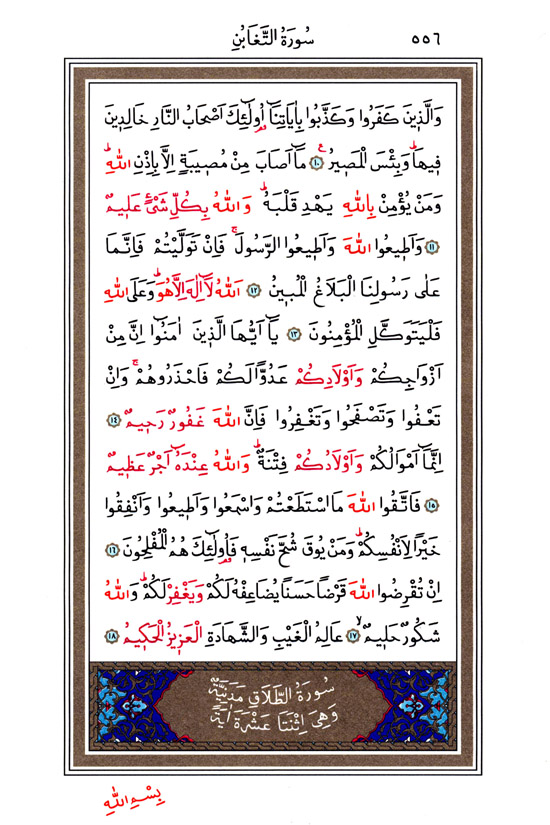 ٥٥٦ سُورَةُ التَّغَابُنِ
وَالَّذ۪ينَ كَفَرُوا وَكَذَّبُوا بِاٰيَاتِنَٓا اُو۬لٰٓئِكَ اَصْحَابُ النَّارِ خَالِد۪ينَ
ف۪يهَاۜ وَبِئْسَ الْمَص۪يرُ۟ ﴿١٠﴾ مَٓا اَصَابَ مِنْ مُص۪يبَةٍ اِلَّا بِاِذْنِ اللّٰهِۜ
وَمَنْ يُؤْمِنْ بِاللّٰهِ يَهْدِ قَلْبَهُۜ وَاللّٰهُ بِكُلِّ شَيْءٍ عَل۪يمٌ
﴿١١﴾ وَاَط۪يعُوا اللّٰهَ وَاَط۪يعُوا الرَّسُولَۚ فَاِنْ تَوَلَّيْتُمْ فَاِنَّمَا
عَلٰى رَسُولِنَا الْبَلَاغُ الْمُب۪ينُ ﴿١٢﴾ اَللّٰهُ لَٓا اِلٰهَ اِلَّا هُوَۜ وَعَلَى اللّٰهِ
فَلْيَتَوَكَّلِ الْمُؤْمِنُونَ ﴿١٣﴾ يَٓا اَيُّهَا الَّذ۪ينَ اٰمَنُٓوا اِنَّ مِنْ
اَزْوَاجِكُمْ وَاَوْلَادِكُمْ عَدُوًّا لَكُمْ فَاحْذَرُوهُمْۚ وَاِنْ
تَعْفُوا وَتَصْفَحُوا وَتَغْفِرُوا فَاِنَّ اللّٰهَ غَفُورٌ رَح۪يمٌ ﴿١٤﴾
اِنَّمَٓا اَمْوَالُكُمْ وَاَوْلَادُكُمْ فِتْنَةٌۜ وَاللّٰهُ عِنْدَهُٓ اَجْرٌ عَظ۪يمٌ
﴿١٥﴾ فَاتَّقُوا اللّٰهَ مَا اسْتَطَعْتُمْ وَاسْمَعُوا وَاَط۪يعُوا وَاَنْفِقُوا
خَيْرًا لِاَنْفُسِكُمْۜ وَمَنْ يُوقَ شُحَّ نَفْسِه۪ فَاُو۬لٰٓئِكَ هُمُ الْمُفْلِحُونَ ﴿١٦﴾
اِنْ تُقْرِضُوا اللّٰهَ قَرْضًا حَسَنًا يُضَاعِفْهُ لَكُمْ وَيَغْفِرْ لَكُمْۜ وَاللّٰهُ
شَكُورٌ حَل۪يمٌۙ ﴿١٧﴾ عَالِمُ الْغَيْبِ وَالشَّهَادَةِ الْعَز۪يزُ الْحَك۪يمُ ﴿١٨﴾
سُورَةُ الطَّلَاقِ مَدَنِيَّةٌ
وَهِيَ اِثْنَتَا عَشْرَةَ اٰيَةً
بِسْمِ اللّٰهِ